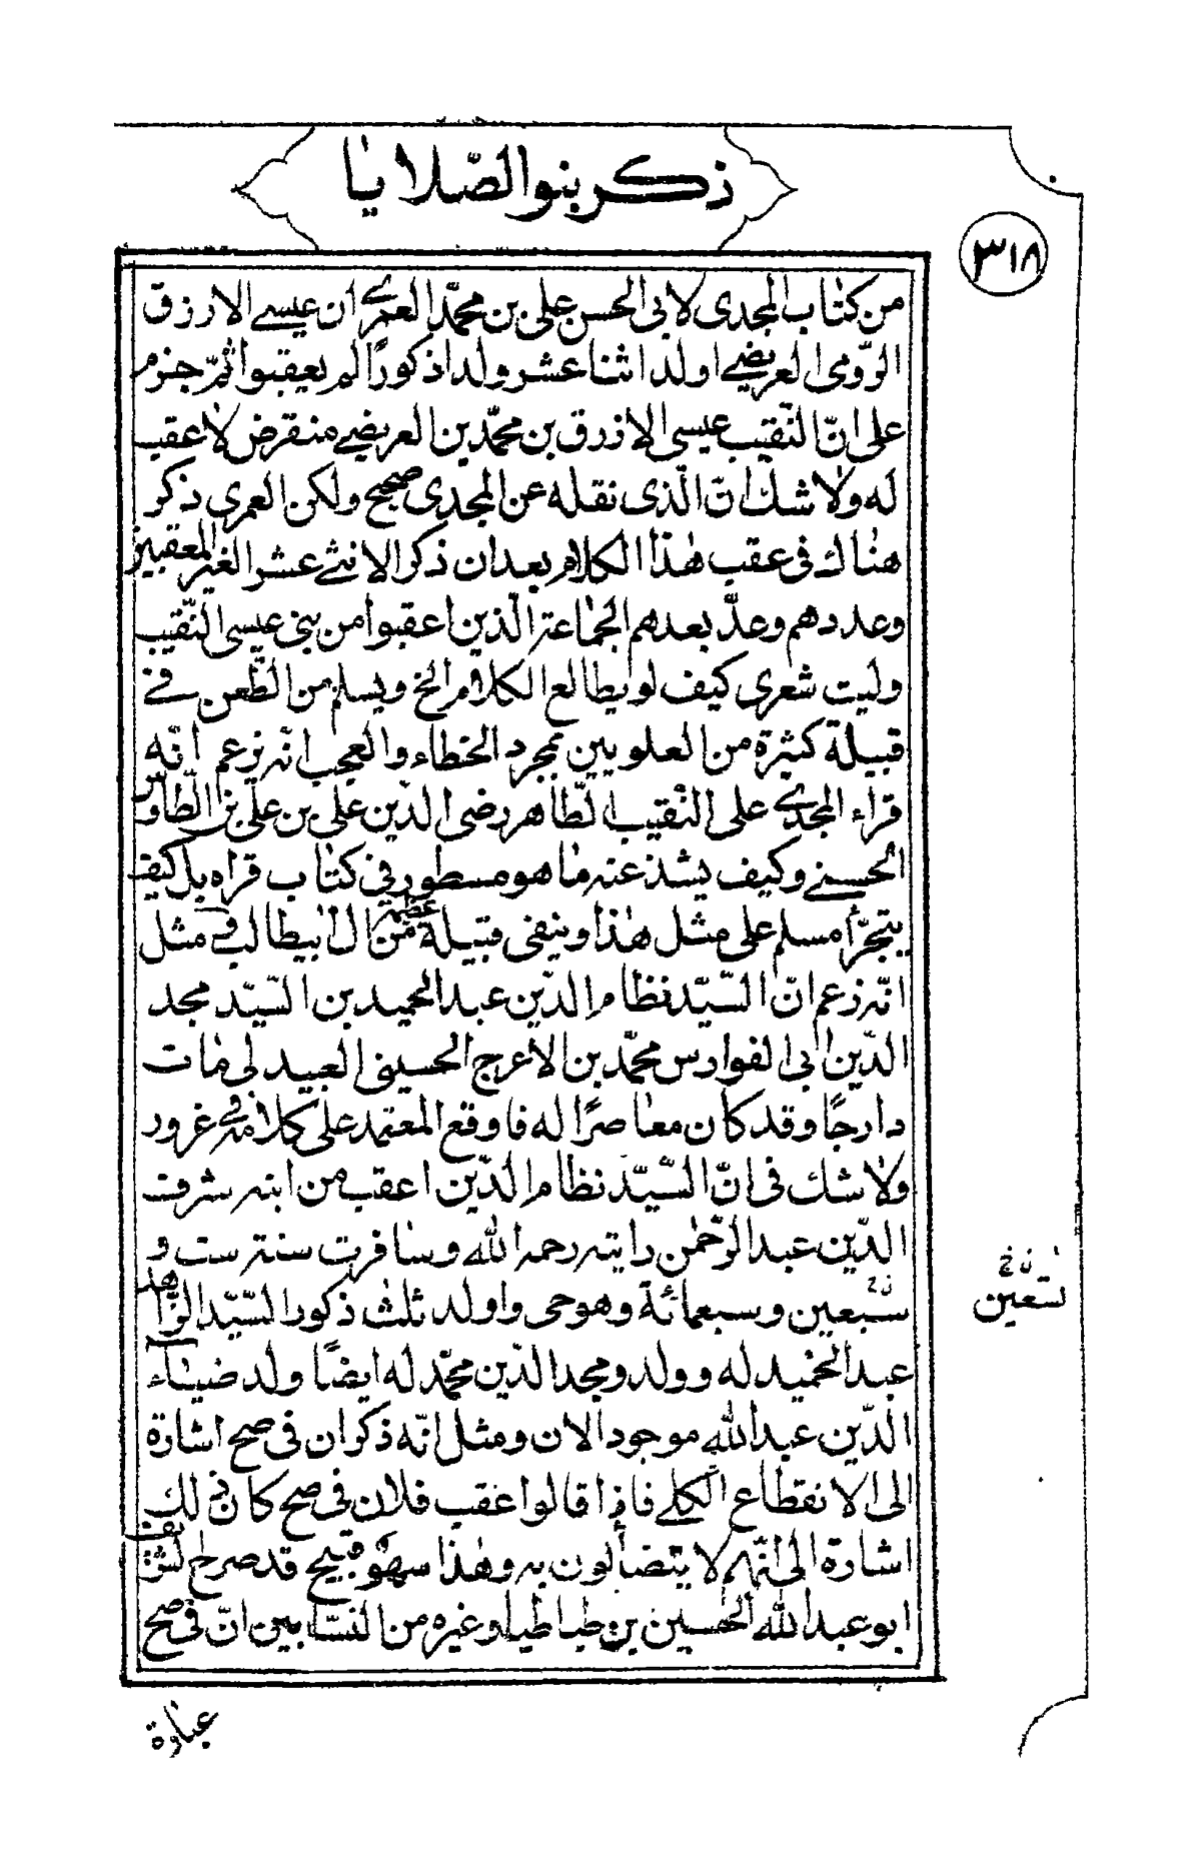 ذكر بنو الصّلايا
٣١٨
من كتاب المجدى لابى الحسن على بن محمّد العمرى ان عيسى الازرق
الرّومى العريضى اولد اثنا عشر ولدا ذكورًا لم يعقبوا ثمّ جزم
على انّ النّقيب عيسى الازرق بن محمّد بن العريضى منقرض لا عقب
له ولا شك انّ الّذى نقله عن المجدى صحيح ولكن العمرى ذكر
هناك فى عقب هذا الكلام بعد ان ذكر الاثنى عشر الغير المعقبين
وعددهم وعدّ بعدهم الجماعة الّذين اعقبوا من بنى عيسى النّقيب
وليت شعرى كيف لو يطالع الكلام الخ ويسلم من الطّعن فى
قبيلة كثيرة من العلويين بمجرد الخطاء والعجب انّه يزعم انّه
قراء المجدى على النّقيب الطّاهر رضى الدّين على بن على بن الطّاوس
الحسنى وكيف يشذ عنه ما هو مسطور فى كتاب قراه بل كيف
يتجرّأ مسلم على مثل هذا وينفى قبيلة عظيمة من ال ابيطالب ومثل
انّه زعم انّ السّيّد نظام الدّين عبد الحميد بن السّيّد مجد
الدّين ابى الفوارس محمّد بن الاعرج الحسينى العبيدلى مات
دارجًا وقد كان معاصرًا له فاوقع المعتمد على كلامه فى غرور
ولا شك فى انّ السّيّد نظام الدّين اعقب من ابنه شرف
الدّين عبد الرّحمن رايته رحمه الله وسافرت سنة ست و
سبعين وسبعمائة وهو حى واولد ثلث ذكور السّيّد الزّاهد
تسعين خ ن
عبد الحميد له وولد ومجد الدّين محمّد له ايضًا ولد ضياء
الدّين عبد الله موجود الان ومثل انّه ذكر ان فى صح اشارة
الى الانقطاع الكلى فاذا قالوا عقب فلان فى صح كان ذلك
اشارة الى انّهم لا يتصألون به وهذا سهو قبيح قد صرح الثقف
ابو عبد الله الحسين بن طباطبا وغيره من النسّابين انّ فى صح
عبارة